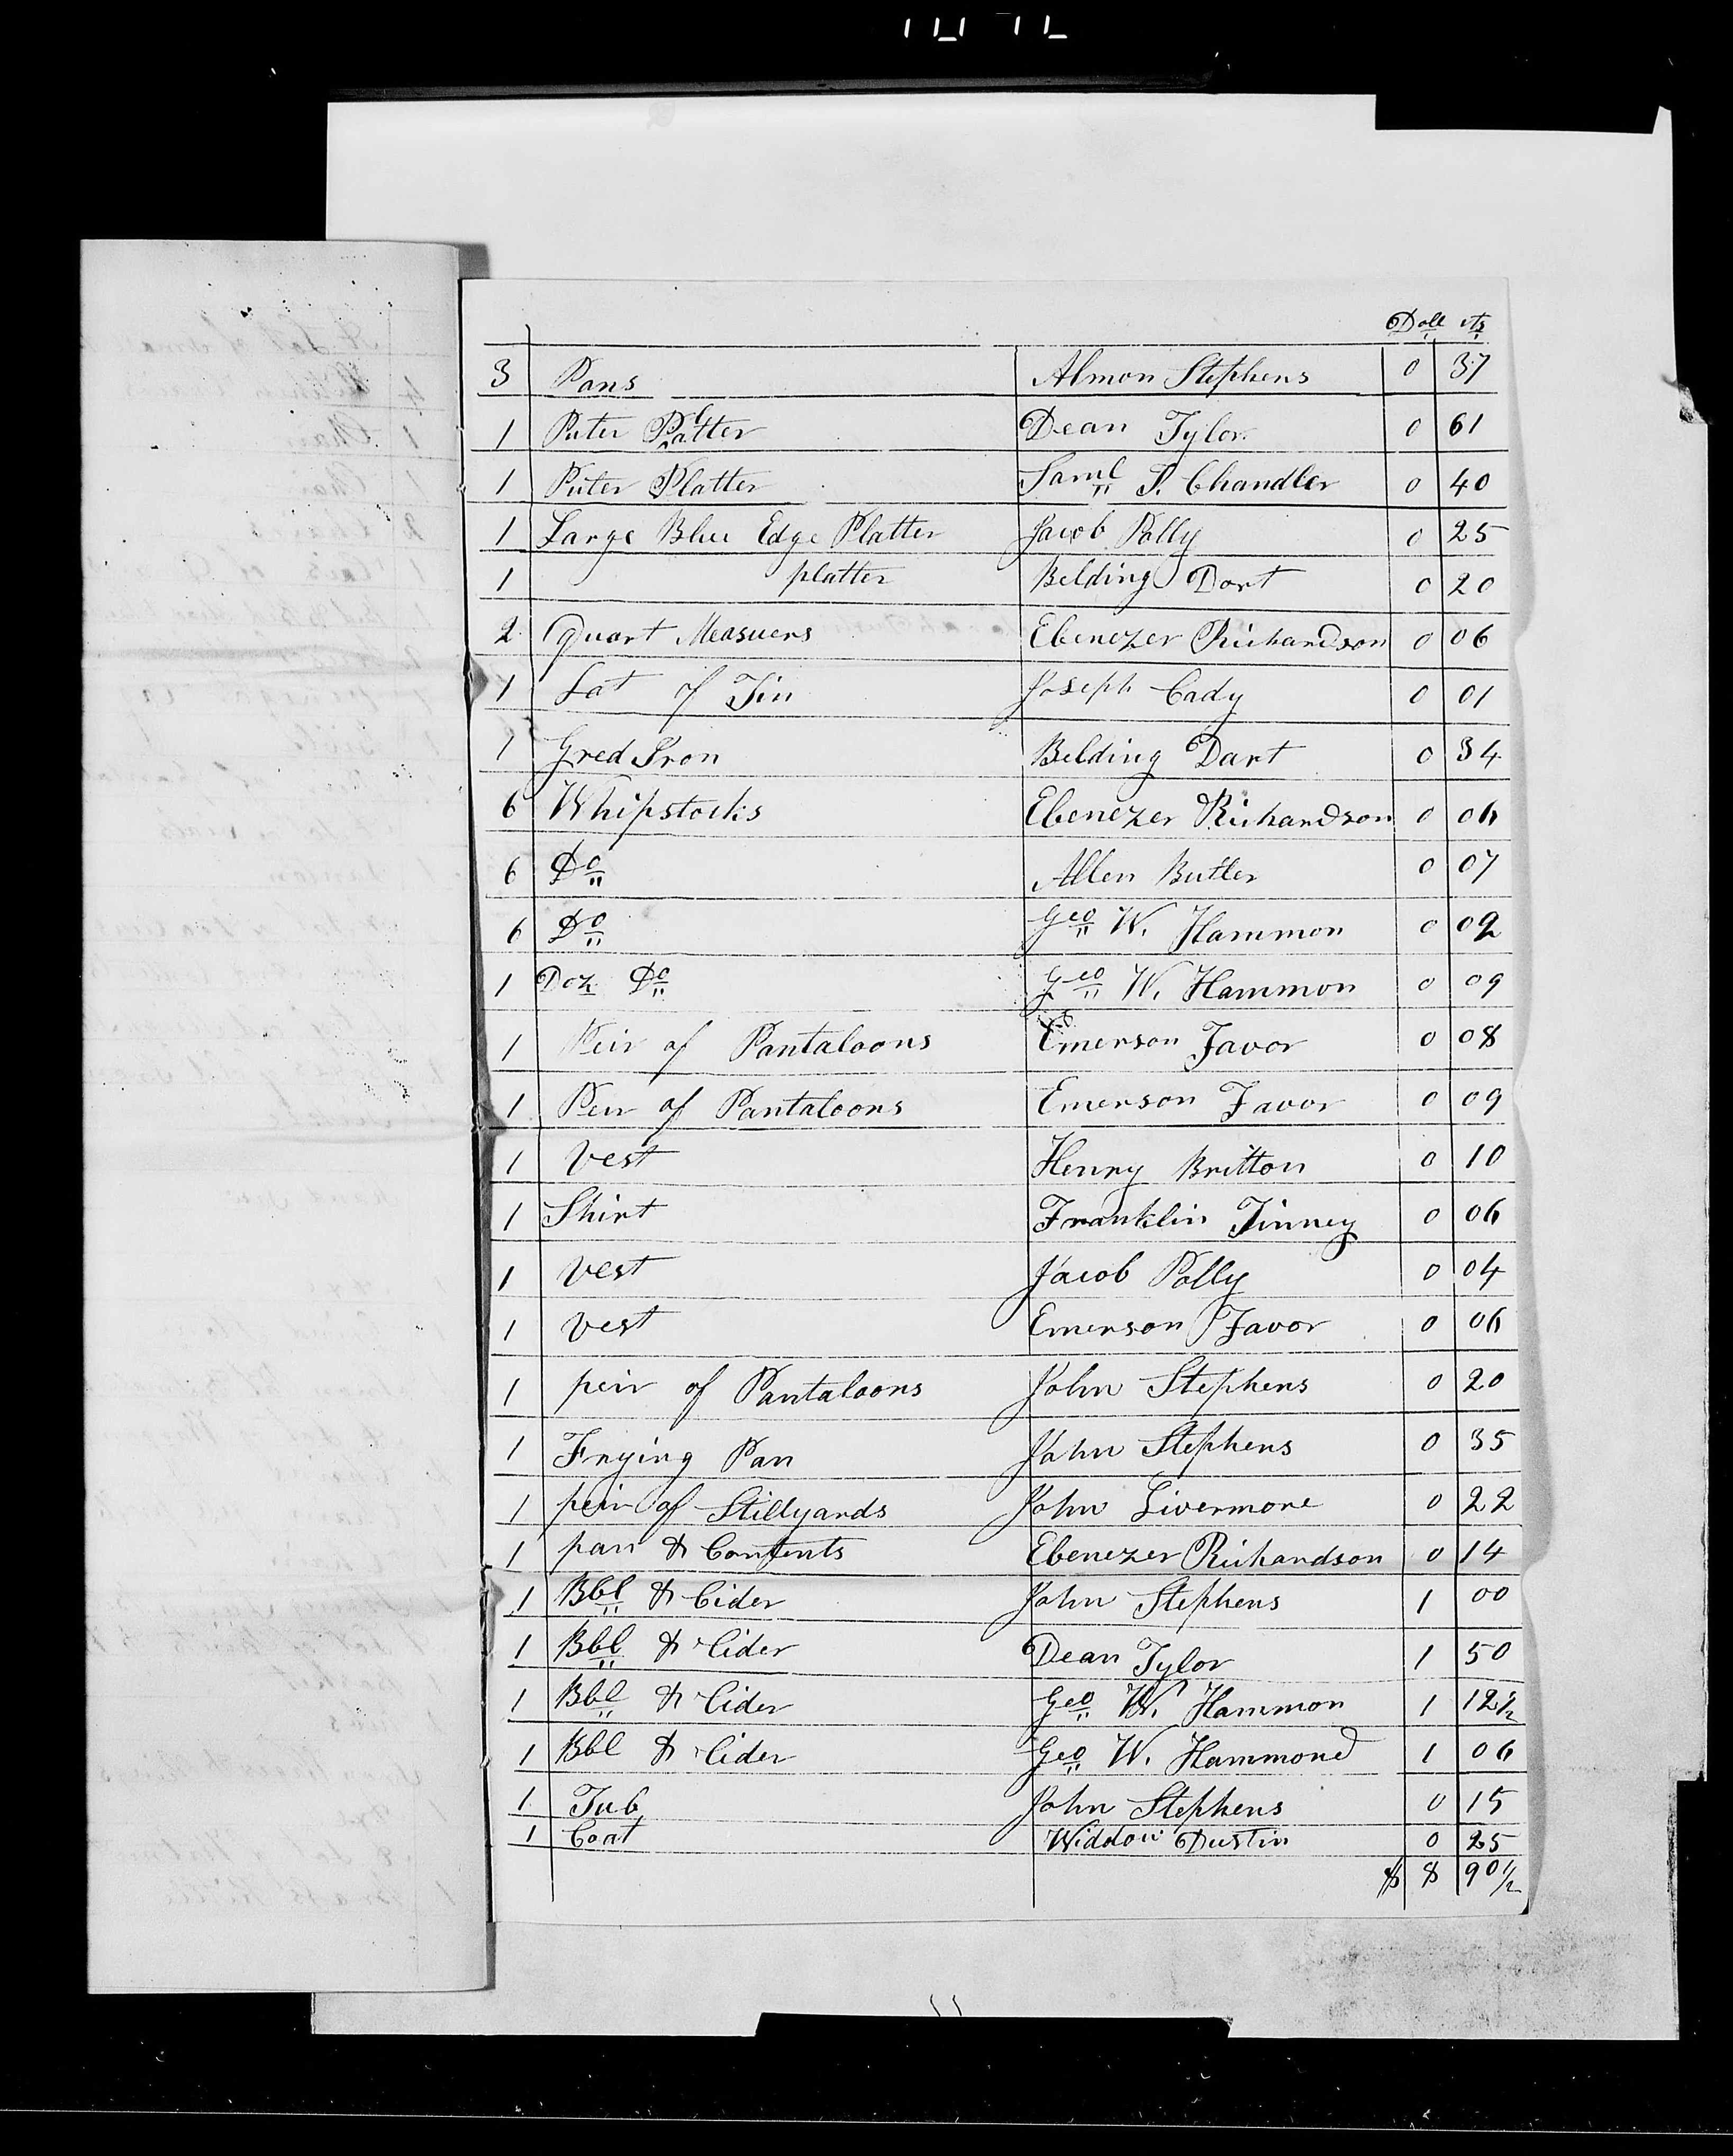 Doll cts
3 Pans Almon Stephens 0 37
1 Puter Platter Dean Tylor 0 61
1 Puter Platter Saml S. Chandler 0 40
1 Large Blue Edge Platter Jacob Polly 0 25
1 platter Belding Dart 0 20
2 Quart Measuers Ebenezer Richardson 0 06
1 Lot of Tin Joseph Cady 0 01
1 Gred Iron Belding Dart 0 34
6 Whipstocks Ebenezer Richardson 0 06
6 Do Allen Butler 0 07
6 Do Geo W. Hammon 0 09
1 Doz Do Geo W. Hammon 0 09
1 Peir of Pantaloons Emerson Favor 0 08
1 Peir of Pantaloons Emerson Favor 0 09
1 Vest Henry Britton 0 10
1 Shirt Franklin Tinney 0 06
1 Vest Jacob Polly 0 04
1 Vest Emerson Favor 0 06
1 peir of Pantaloons John Stephens 0 20
1 Frying Pan John Stephens 0 35
1 peir of Stillyards John Livermore 0 22
1 pan & Contents Ebenezer Richardson 0 14
1 Bbl & Cider John Stephens 1 00
1 Bbl & Cider Dean Tylor 1 50
1 Bbl & Cider Geo W. Hammon 1 12½
1 Bbl & Cider Geo W. Hammond 1 06
1 Tub John Stephens 0 15
1 Coat Widdow Dustin 0 25
$ 8 90½